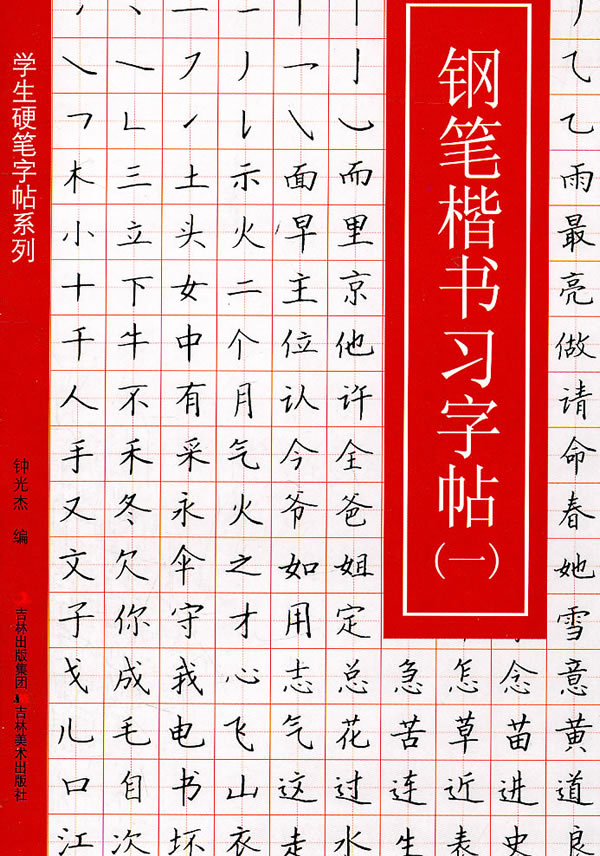 学生硬笔字帖系列
钟光杰 编
吉林出版集团 吉林美术出版社
钢笔楷书习字帖
(一)
木 三 土 示 面 而 雨
小 立 头 火 早 里 最
十 下 女 二 主 京 亮
千 牛 中 个 位 他 做
人 不 有 月 认 许 请
手 禾 采 气 今 全 命
又 冬 永 火 爷 爸 春
文 欠 伞 之 如 姐 她
子 你 守 才 用 定 雪
戈 成 我 心 志 总 急 怎 念 意
儿 毛 电 飞 气 花 苦 草 苗 黄
口 自 书 山 这 过 连 近 进 道
江 次 坏 衣 走 水 生 表 史 良